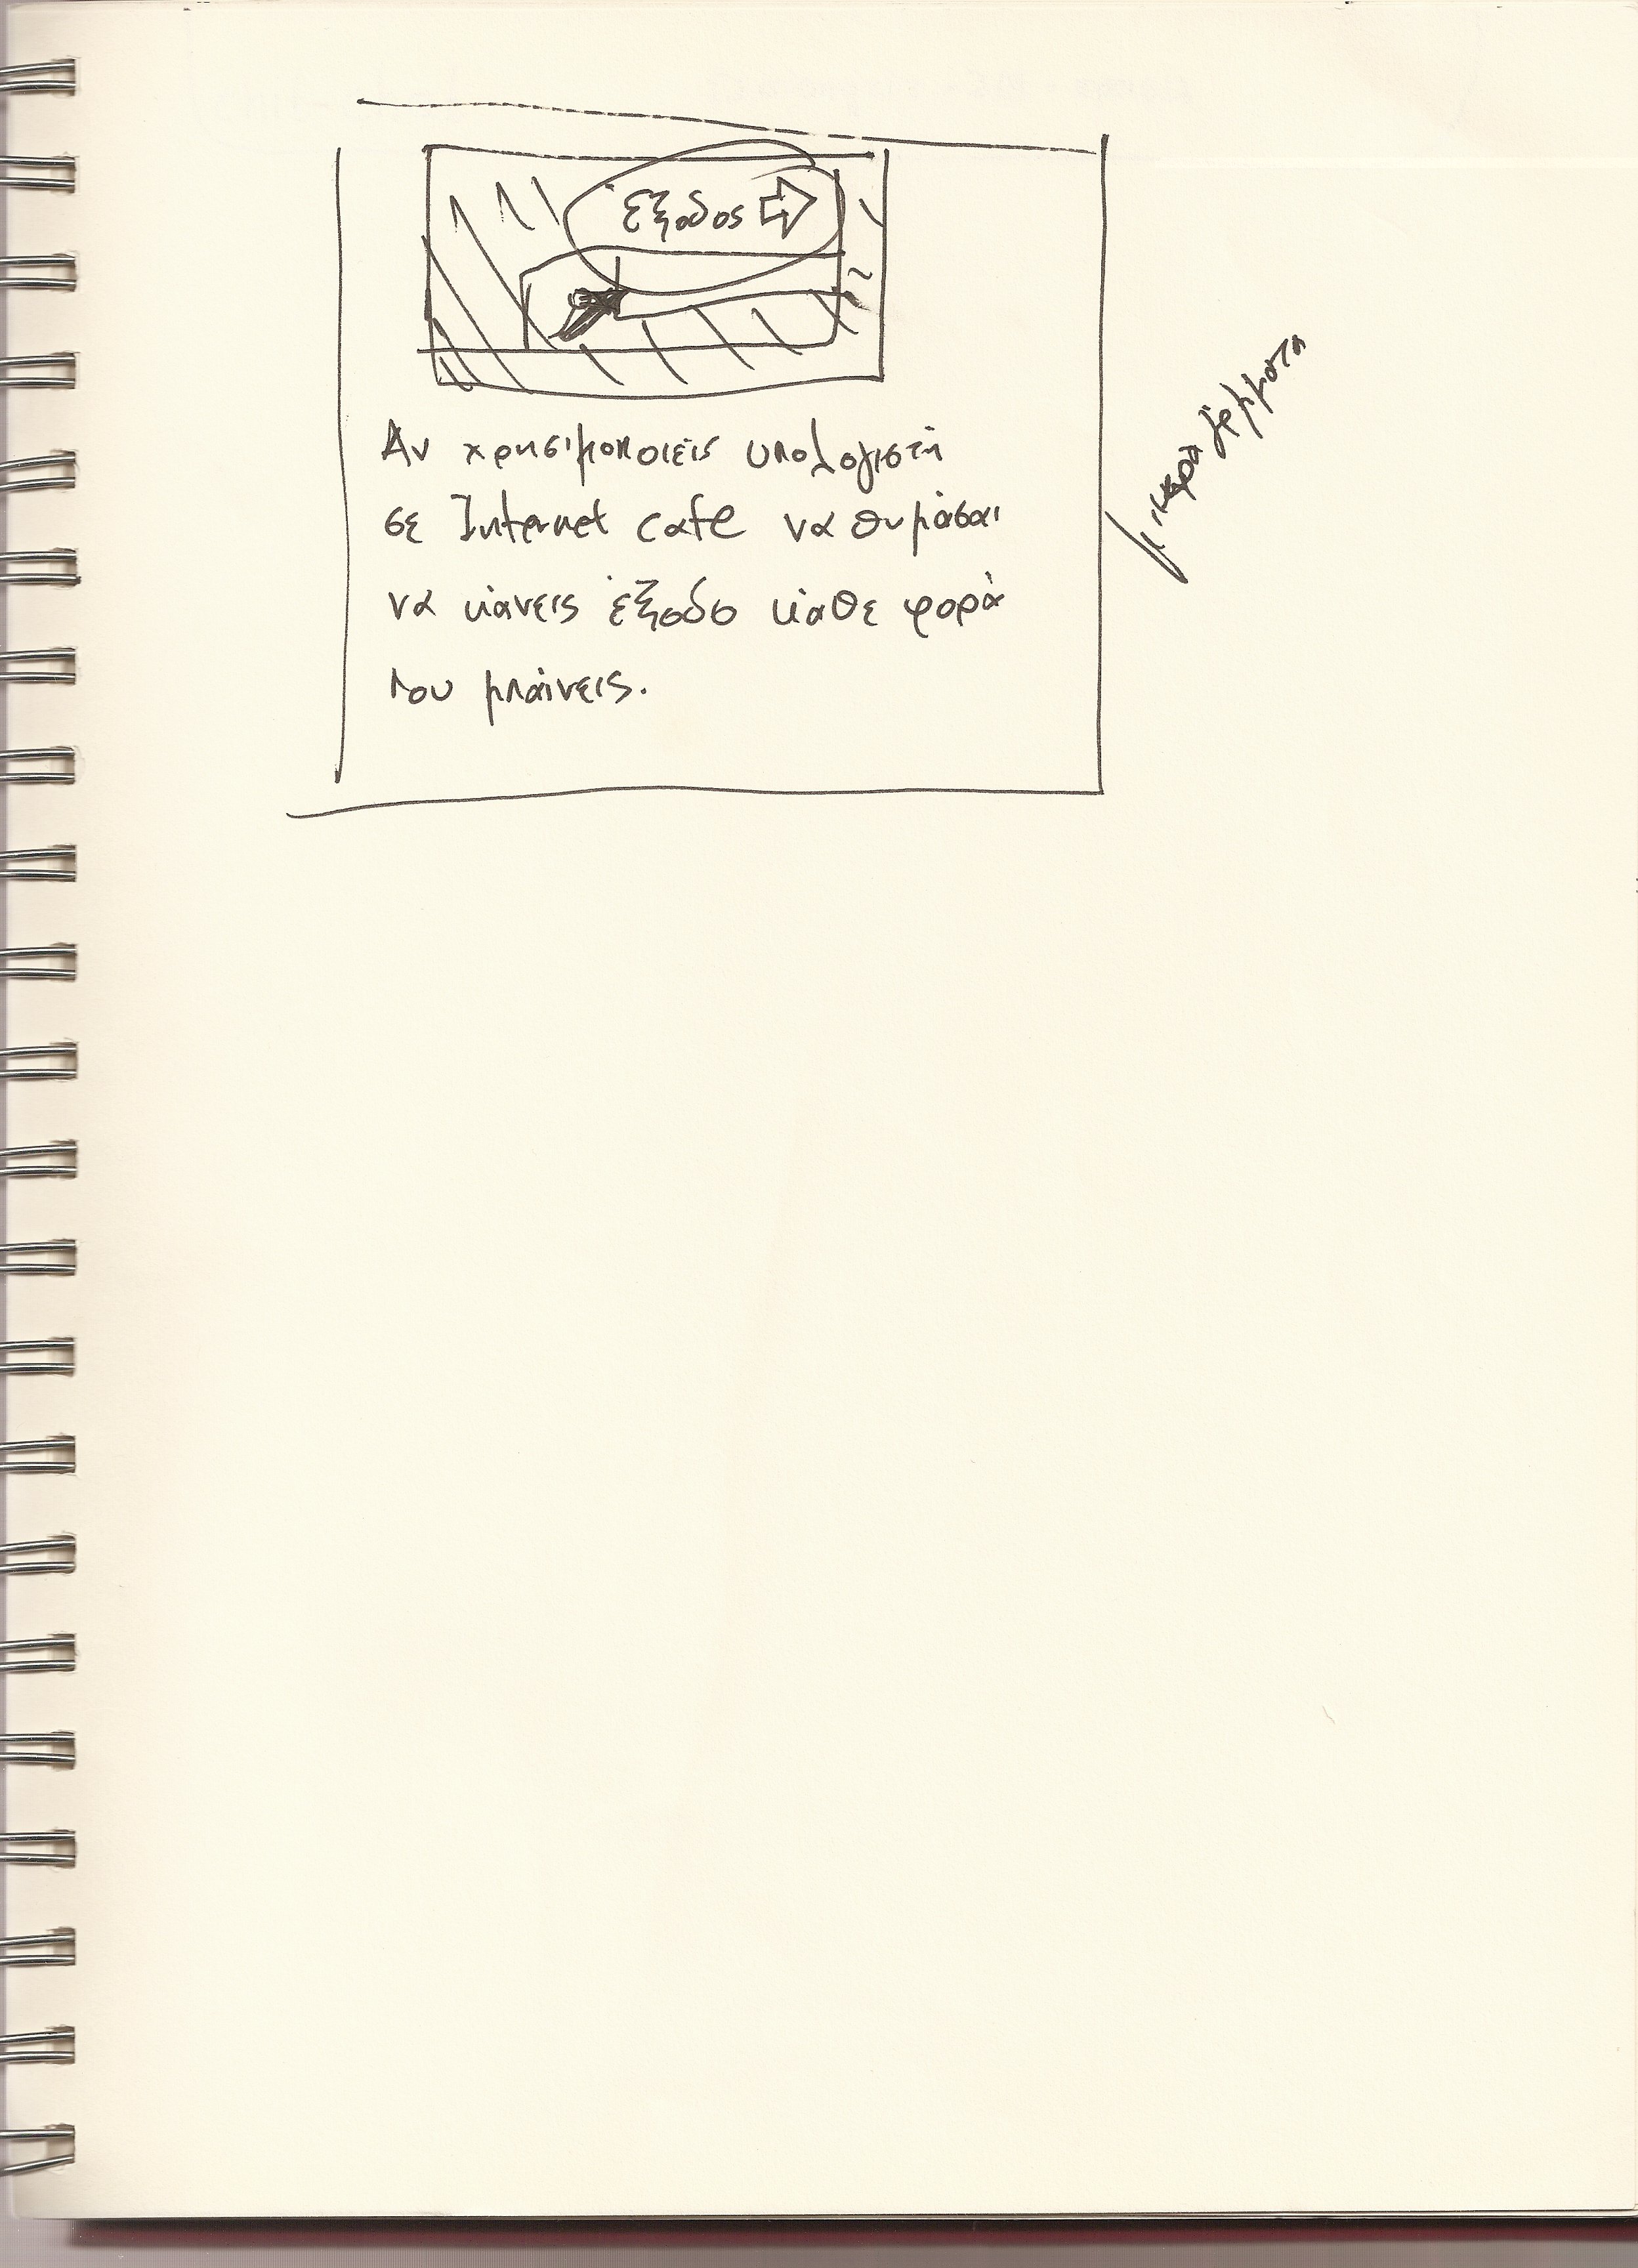 Έξοδος
Αν χρησιμοποιείς υπολογιστή
σε Internet cafe να θυμάσαι
να κάνεις έξοδο κάθε φορά
που μπαίνεις.
μικρά γράμματα